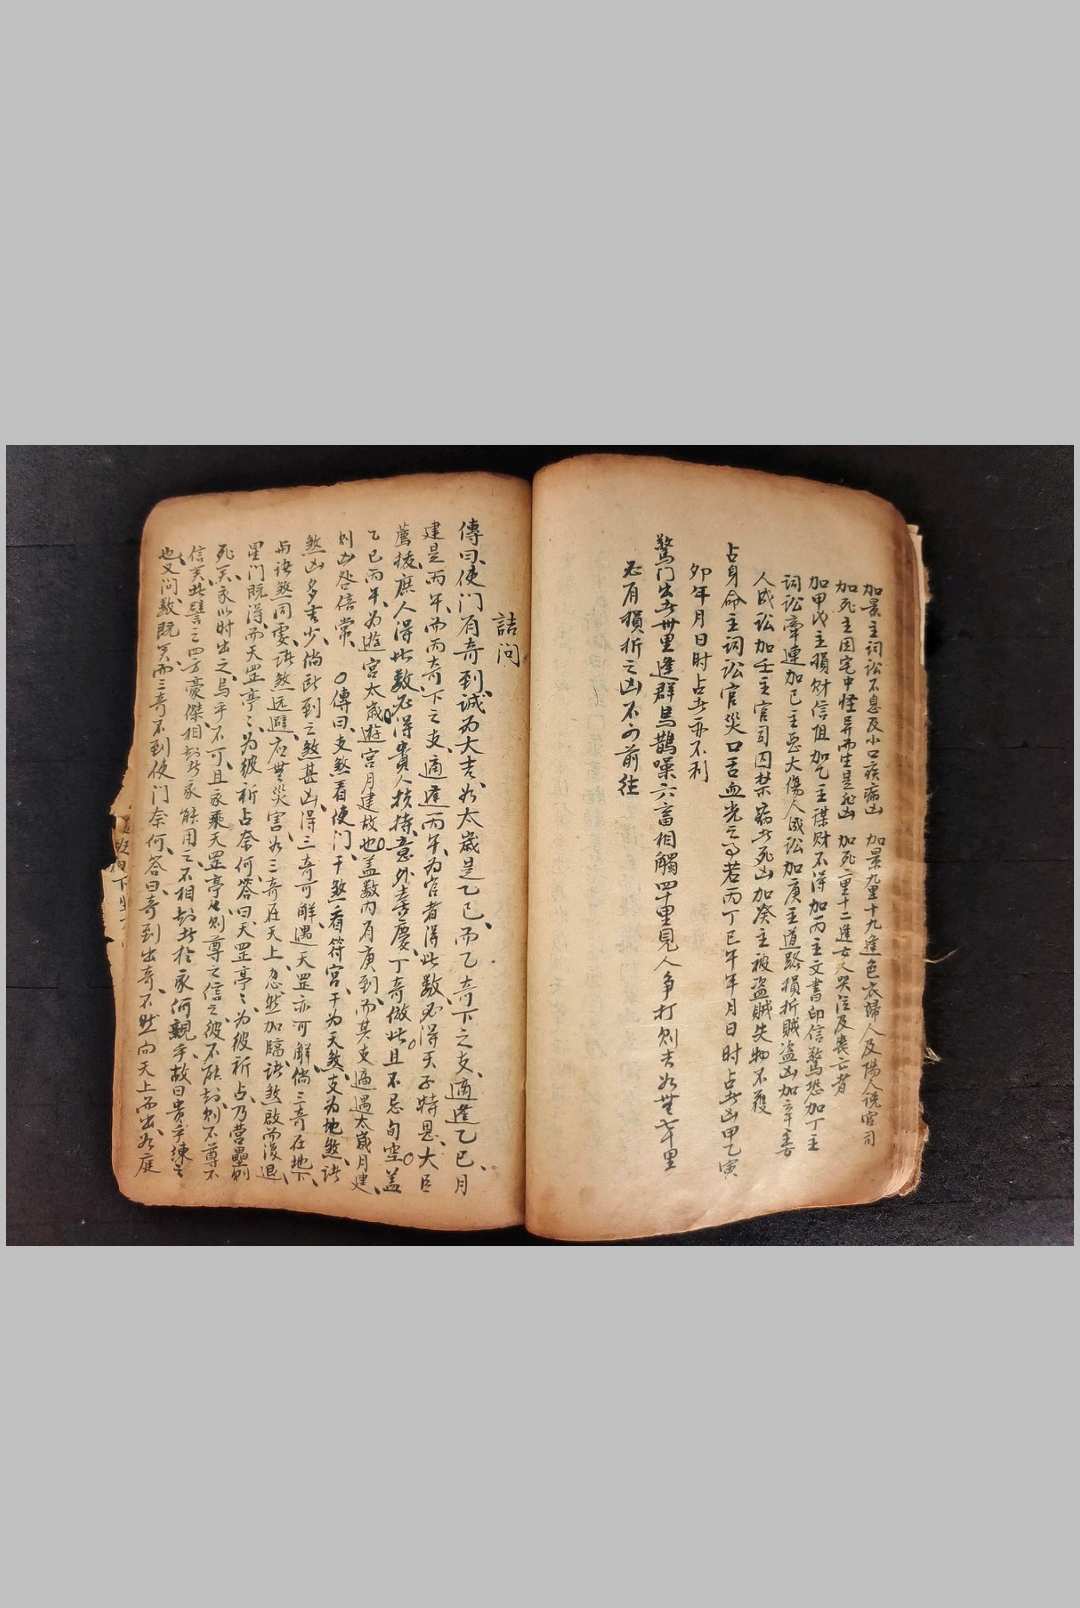 加景主詞訟不息及小口疾病凶 加景九里十九逢色衣婦人及陽人說官司
加死主因宅中怪異而生是非凶 加死二里十二逢女人哭泣及喪亡者
加甲戊主損財信阻加乙主謀財不得加丙主文書印信驚恐加丁主
詞訟牽連加己主惡犬傷人成訟加庚主道路損折賊盜凶加辛主
人成訟加壬主官司囚禁病者死凶加癸主被盜賊失物不獲
占身命主詞訟官災口舌血光之事若丙丁巳午年月日时占者凶甲乙寅
卯年月日时占者亦不利
驚门出者卅里逢群烏鵲噪六畜相觸四十里見人争打則吉如無七十里
必有損折之凶不可前往
詰问
傳曰使门有奇到誠为大吉如太歲是乙巳而乙奇下之支適逢乙巳月
建是丙午而丙奇下之支適逢丙午为官者得此数必得天子特恩大臣
薦拔庶人得此数必得貴人扶持意外喜慶丁奇倣此且不忌旬空盖
乙巳丙午为遊宫太歲遊宫月建故也盖数内有庚到而其支適遇太歲月建
则凶咎倍常 〇傳曰支煞看使门干煞看符宮干为天煞支为地煞諸
煞凶多吉少倘臨到之煞甚凶得三奇可解遇天罡亦可解倘三奇在地下
與諸煞同處諸煞远避应無災害如三奇在天上忽然加臨諸煞啟而復退
星门既得而天罡亭亭为彼祈占奈何答曰天罡亭亭为彼祈占乃营壘则
死矣我以时出之烏乎不可且我乘天罡亭亭则尊之信之彼不尅则不尊不
信矣此譬之四方豪傑相尅於我能用之不相尅於我何親乎故曰贵乎練之
也又问数既冥而三奇不到使门奈何答曰奇到出奇不然向天上而出如庭